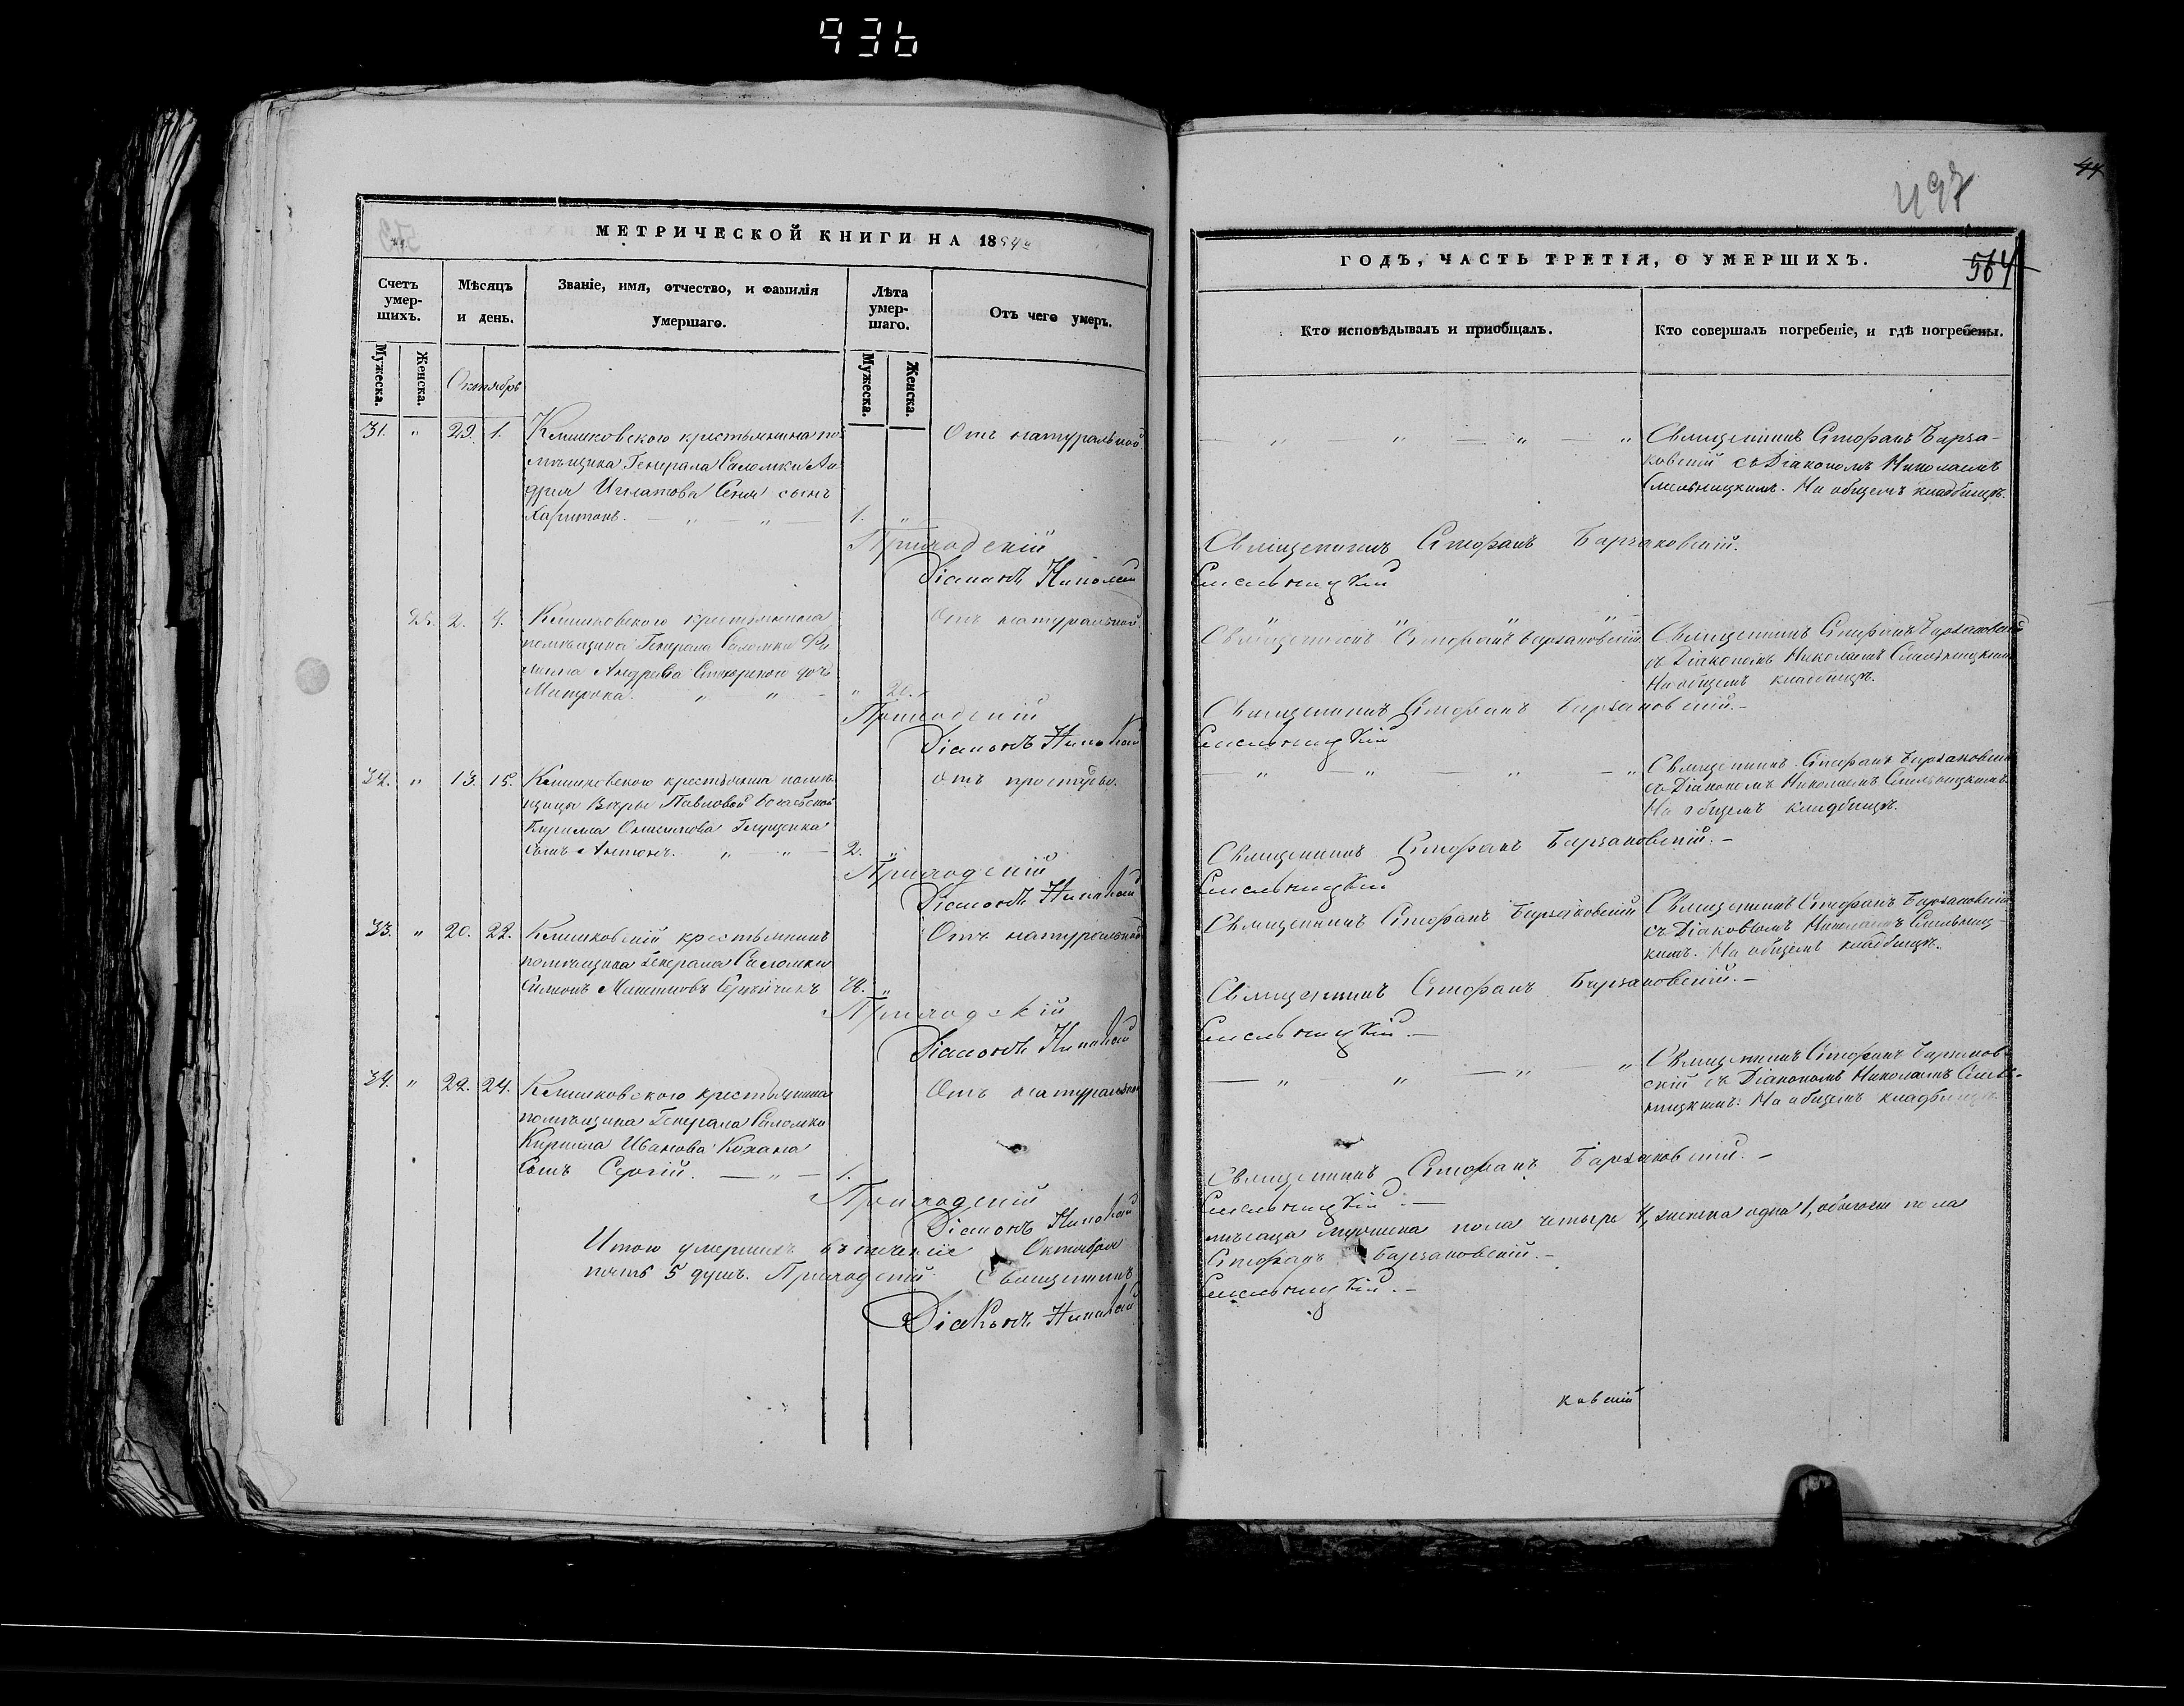 936
497
44
МЕТРИЧЕСКОЙ КНИГИ НА 1854
Счетъ умер-шихъ.
Мѣсяцъ и день.
Званіе, имя, отчество, и фамилія умершаго.
Лѣта умер-шаго.
Отъ чего умеръ.
Мужеска.
Женска.
Октябрь
Мужеска.
Женска.
31. " 29. 1. Климковского крестьянина по-
мѣщика Генерала Саломки Ан
дрея Игнатова Сеня сынъ
Харитонъ. — " — " — 1. "
Отъ натуральной
Приходскій
Діаконъ Николай
25. 2. 4. Климковского крестьянина
помѣщика Генерала Саломки Фи
липа Андреева дочь
" " — " 20.
Отъ натуральной.
Приходскій
Діаконъ Николай
32. " 13. 15. Климковского крестьянина помѣ
щицы Вѣры Павловой
Кирилла Глущенка
сынъ Антонъ. " — " — 2. "
отъ простуды.
Приходскій
Діаконъ Николай
33. " 20. 22. Климковскій крестьянинъ
помѣщика Генерала Саломки
Симонъ "
Отъ натуральной
Приходскій
Діаконъ Николай
34. " 22. 24. Климковского крестьянина
помѣщика Генерала Саломки
Кирилла Иванова Кохана
сынъ Сергій. — " — 1.
Отъ натуральной
Приходскій
Діаконъ Николай
Итого умершихъ въ теченіе Октября
пять 5 душъ. Приходскій Священникъ
Діаконъ Николай
ГОДЪ, ЧАСТЬ ТРЕТІЯ, О УМЕРШИХЪ.
564
Кто исповѣдывалъ и пріобщалъ.
Кто совершалъ погребеніе, и гдѣ погребены.
— " " — " "
Священникъ Стефанъ Барза-
ковскій съ Діакономъ Николаемъ
Смельницкимъ. На общемъ кладбищѣ.
Священникъ Стефанъ Барзаковскій.
Смельницкій
Священникъ Стефанъ Барзаковскій
Священникъ Стефанъ Барзаковскій
съ Діакономъ Николаемъ Смельницкимъ
На общемъ кладбищѣ.
Священникъ Стефанъ Барзаковскій.—
Смельницкій
— " — " — " — "
Священникъ Стефанъ Барзаковскій
съ Діакономъ Николаемъ Смельницкимъ.
На общемъ кладбищѣ.
Священникъ Стефанъ Барзаковскій.—
Смельницкій
Священникъ Стефанъ Барзаковскій
Священникъ Стефанъ Барзаковскій
съ Діакономъ Николаемъ Смельниц-
кимъ. На общемъ кладбищѣ.
Священникъ Стефанъ Барзаковскій.—
Смельницкій.—
— " " — " "
Священникъ Стефанъ Барзаков
скій съ Діакономъ Николаемъ Смель-
ницкимъ. На общемъ кладбищѣ
Священникъ Стефанъ Барзаковскій.—
Смельницкій.—
мѣсяца мужеска пола четыре 4, женска одна 1, обоего пола
Стефанъ Барзаковскій.—
Смельницкій.—
ковскій